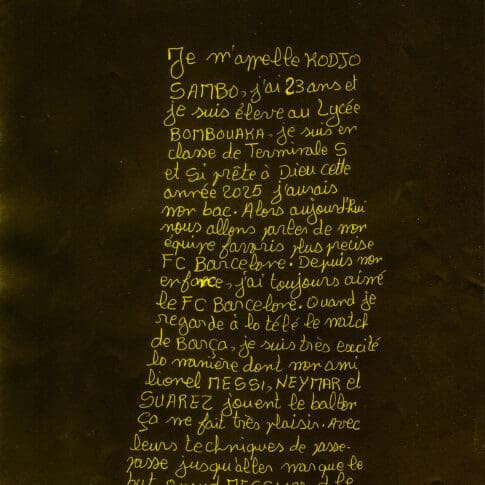 Je m'appelle KODJO
SAMBO, j'ai 23 ans et
je suis élève au Lycée
BOMBOUAKA. je suis en
classe de Terminale S
et Si prête à Dieu cette
année 2025 j'aurais
mon bac. Alors aujourd'hui
nous allons parler de mon
équipe favoris plus precise
FC Barcelone. Depuis mon
enfance, j'ai toujours aimé
le FC Barcelone. Quand je
regarde à la télé le match
de Barça, je suis très excité
la manière dont mon ami
lionel MESSI, NEYMAR et
SUAREZ jouent le ballon
ça me fait très plaisir. Avec
leurs techniques de passe-
passe jusqu'aller marque le
but. Quand MESSI